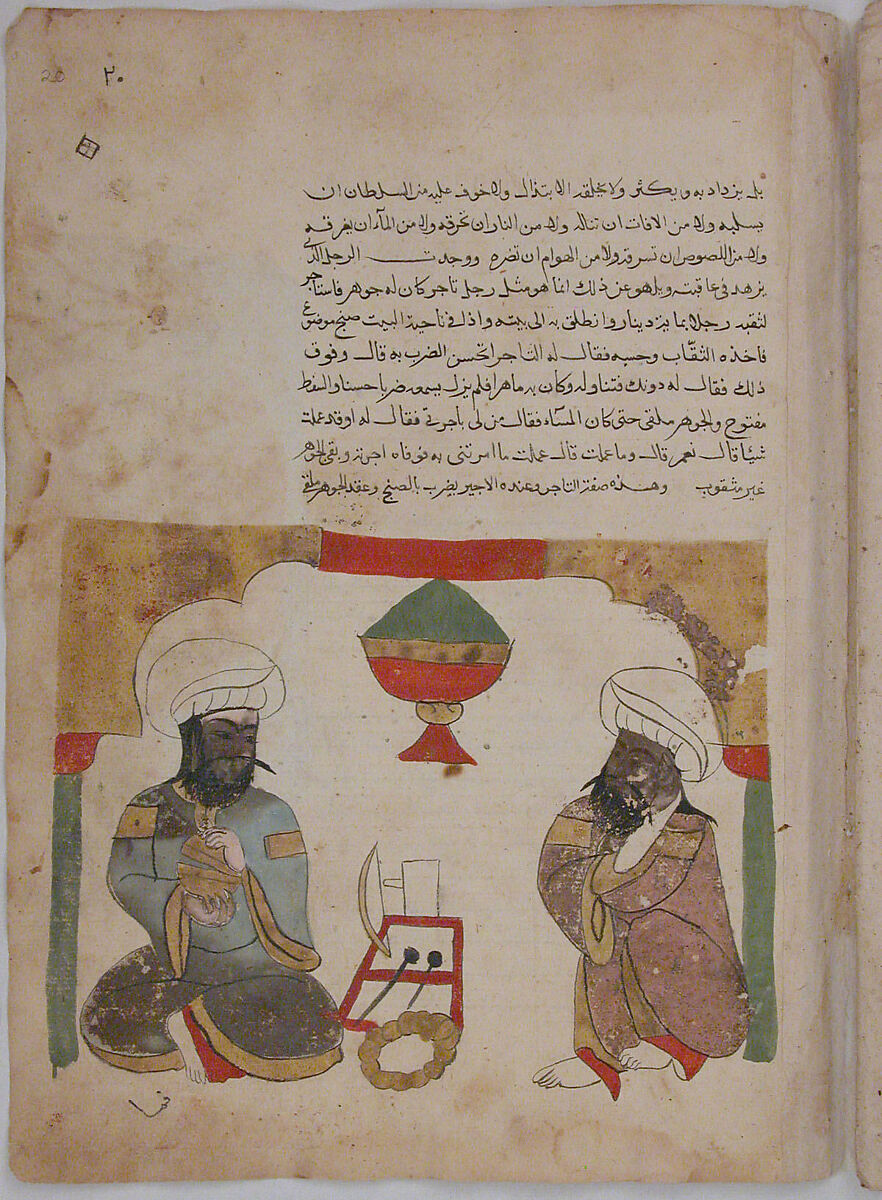 20 ٢٠
بل يزداد به ويكثر ولا يخلقه الابتذال ولا خوف عليه من السلطان ان
يسلبه ولا من الافات ان تناله ولا من النار ان تحرقه ولا من الماء ان يغرقه
ولا من اللصوص ان تسرقه ولا من الهوام ان تضره ووجدت الرجل الذي
يزهد في عاقبته ويلهو عن ذلك انما هو مثل رجل تاجر كان له جوهر فاستاجر
لثقبه رجلا بماية دينار وانطلق به الى بيته واذا في ناحية البيت صنج موضوع
فاخذه الثقاب وحبسه فقال له التاجر اتحسن الضرب به قال وفوق
ذلك فقال له دونك فتناوله وكان به ماهرا فلم يزل يسمعه ضربا حسنا والسفط
مفتوح والجوهر ملقى حتى كان المساء فقال من لي باجرتي فقال له اوقد عملت
شيئا قال نعم قال وما عملت قال عملت ما امرتني به فوفاه اجرته وبقي الجوهر
غير مثقوب وهذه صفة التاجر وعنده الاجير يضرب بالصنج وعقد الجوهر ملقى